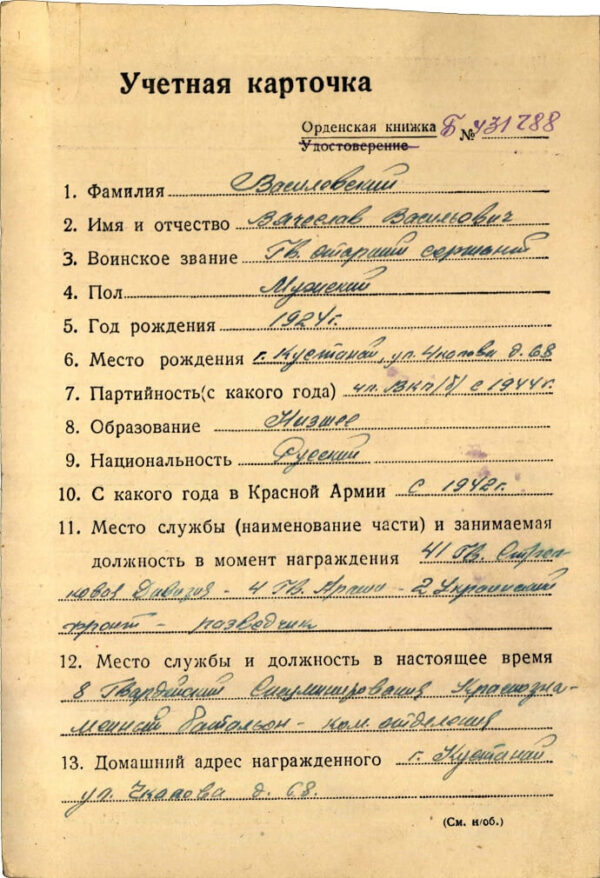 Учетная карточка
Орденская книжка Б № 431288
Удостоверение
1. Фамилия Василевский
2. Имя и отчество Вячеслав Васильевич
3. Воинское звание Гв. старший сержант
4. Пол Мужской
5. Год рождения 1924г.
6. Место рождения г. Кустанай, ул. Чкалова д. 68
7. Партийность(с какого года) чл. ВКП/б/ с 1944г.
8. Образование Низшее
9. Национальность Русский
10. С какого года в Красной Армии с 1942г.
11. Место службы (наименование части) и занимаемая
должность в момент награждения 41 Гв. Стрел-
ковая Дивизия - 4 Гв. Армии - 2 Украинский
фронт - разведчик
12. Место службы и должность в настоящее время
8 Гвардейский Краснозна-
менный батальон - ком. отделения
13. Домашний адрес награжденного г. Кустанай
ул. Чкалова д. 68.
(См. н/об.)